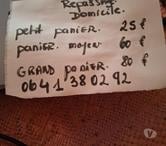 Repassage
Domicile.
petit panier. 25 €
panier. moyen 60 €
GRAND panier. 80 €
0641380292